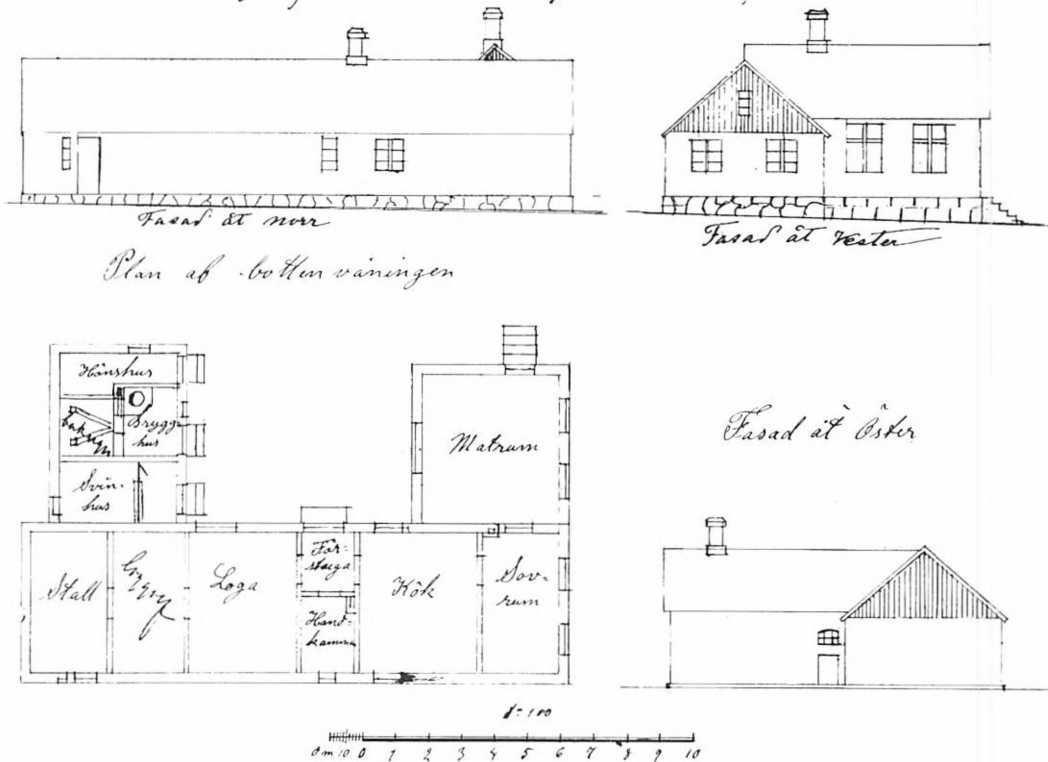 Fasad åt norr
Fasad åt Vester
Plan af bottenvåningen
Hönshus
Brygg-
hus
Svin-
hus
Matrum
Fasad åt Öster
Stall
Loga
För-
stuga
Hand-
kammare
Kök
Sov-
rum
1:100
dm 10 0 1 2 3 4 5 6 7 8 9 10